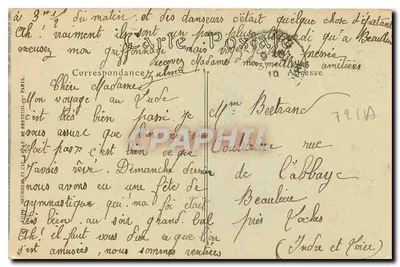 à 3h 1/2 du matin et des danseurs c'était quelque chose d'épatant
Ah! vraiment ils sont un peu plus dégourdi qu'a Beaulieu
excusez mon griffonnage mais je suis pressée
Carte Postale
recevez Madame mes meilleures amitiés
Correspondance
Adresse
Chère Madame
Mon voyage au Lude
s'est très bien passé je
vous assure que
n'était pas
c'est bien ce que
j'avais rêvé. Dimanche dernier
nous avons eu une fête de
gymnastique qui, ma foi était
très bien au soir grand bal
Ah! il faut vous dire ce que l'on
s'est amusées, nous sommes rentrées
Mme Bertrand
Couturière rue
de l'abbaye
Beaulieu
près Loches
(Indre et Loire)
721A
CPAPHIL